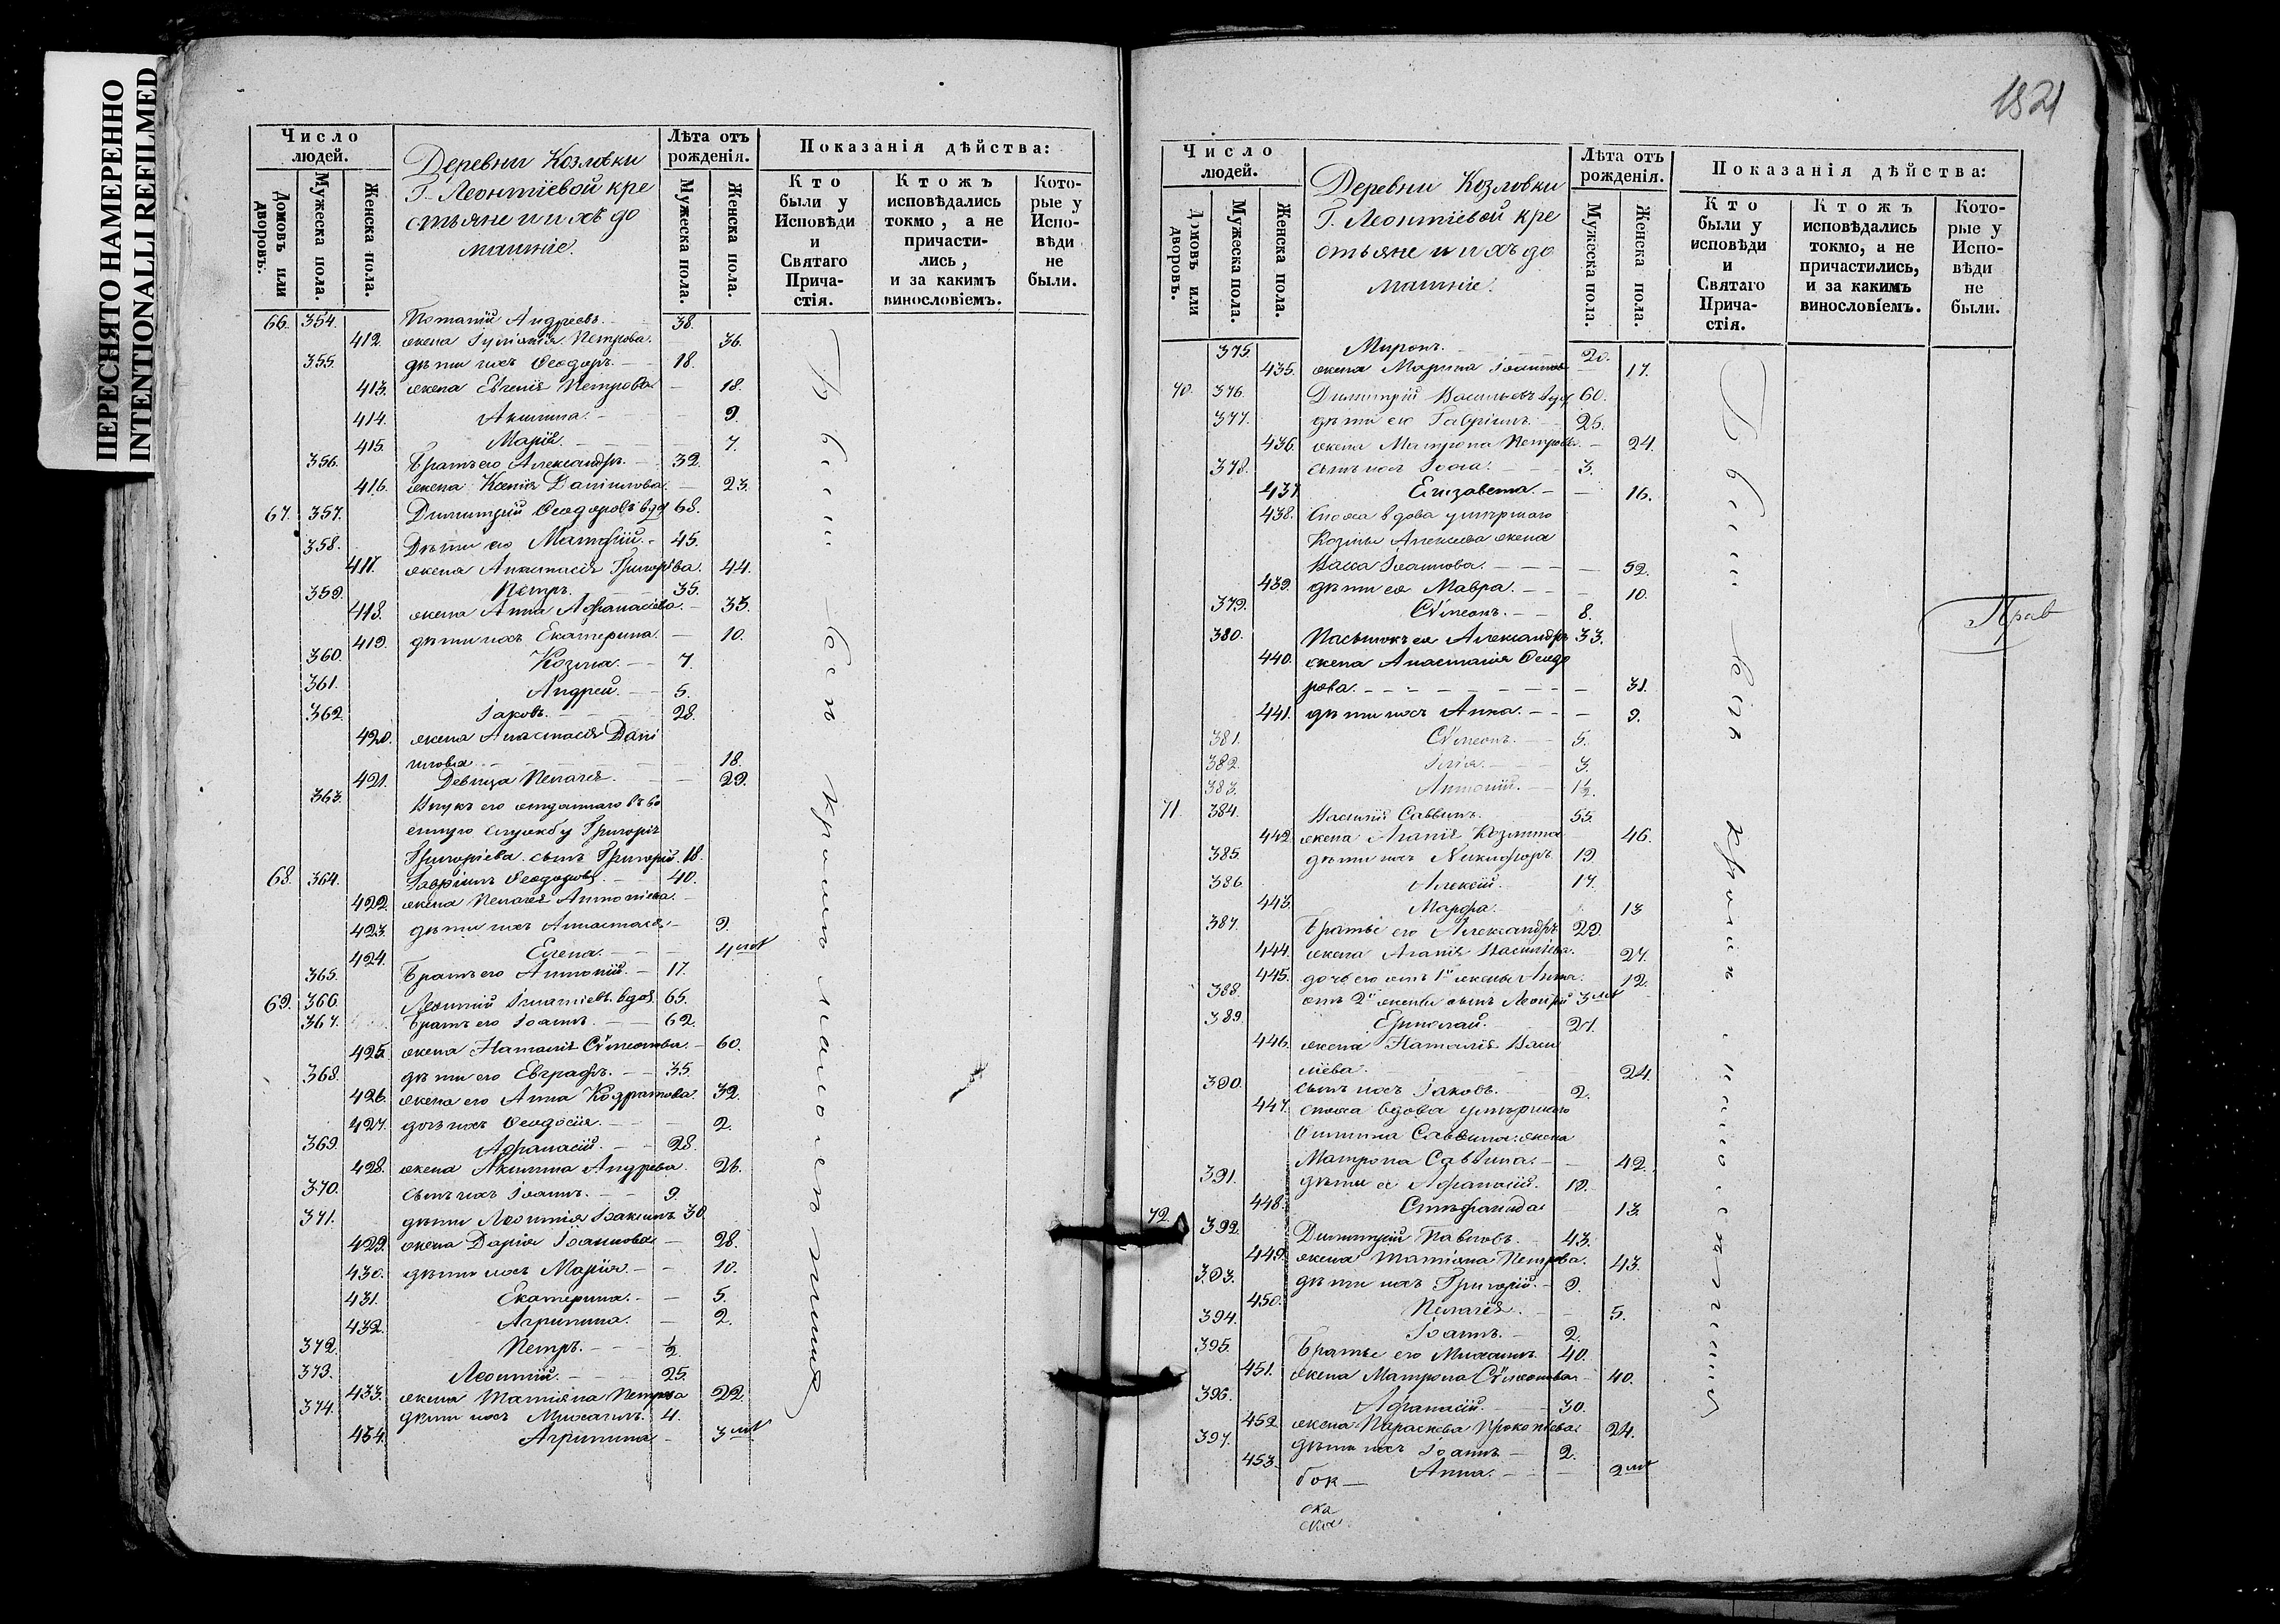 ПЕРЕСНЯТО НАМЕРЕННО
INTENTIONALLI REFILMED
Число людей.
Домовъ или дворовъ.
Мужеска пола.
Женска пола.
Деревни Козловки
Г. Леонтіевой кре
стьяне и ихъ до
машніе.
Лѣта отъ рожденія.
Мужеска пола.
Женска пола.
Показанія дѣйства:
Кто были у Исповѣди и Святаго Прича- стія.
Ктожъ исповѣдались токмо, а не причасти- лись, и за какимъ винословіемъ.
Кото- рые у Испо- вѣди не были.
66. 354. Потапій Андреевъ. 38.
412. жена Петрова. 36.
355. дѣти ихъ Ѳеодоръ. 18.
413. жена Евгенія Петрова 18.
414. Акилина. 9.
415. Марія. 7.
356. Братъ его Александръ. 32.
416. жена Ксенія Даніилова. 23.
67. 357. Димитрій Ѳеодоровъ вдов 68.
358. Дѣти его Матфій. 45.
417. жена Анастасія Григорьева. 44.
359. Петръ. 35.
418. жена Анна Афанасіева. 35.
419. дѣти ихъ Екатерина. 10.
360. Козма. 7.
361. Андрей. 5.
362. Іаковъ. 28.
420. жена Анастасія Дані
илова 18.
421. Девица Пелагея. 22.
363. Внукъ его отданнаго въ во
енную службу Григорія
Григоріева сынъ Григорій. 18.
68. 364. Гавріилъ Ѳеодоровъ. 40.
422. жена Пелагея Антоніева.
423. дѣти ихъ Анастасія 9.
424. Елена. 4 мѣ
365. Братъ его Антоній. 17.
69. 366. Леонтій Игнатіевъ вдов. 65.
367. Братъ его Іоаннъ. 62.
425. жена Наталія Сѵмеонова. 60.
368. дѣти его Евграфъ. 35.
426. жена его Анна Кодратова. 32.
427. дочь ихъ Ѳеодосія. 2.
369. Афанасій. 28.
428. жена Акилина Андрева. 26.
370. сынъ ихъ Іоаннъ. 9.
371. дѣти Леонтія Іоакимъ 30.
429. жена Дарія Іоаннова 28.
430. дѣти ихъ Марія. 10.
431. Екатерина. 5.
432. Агрипина. 2.
372. Петръ. ½.
373. Леонтій. 25.
433. жена Матіяна Петрова 22.
374. дѣти ихъ Михаилъ. 4.
434. Агрипина 3 мѣ
1821
Число людей.
Домовъ или дворовъ.
Мужеска пола.
Женска пола.
Деревни Козловки
Г. Леонтіевой кре
стьяне и ихъ до
машніе.
Лѣта отъ рожденія.
Мужеска пола.
Женска пола.
Показанія дѣйства:
Кто были у исповѣди и Святаго Прича- стія.
Ктожъ исповѣдались токмо, а не причастились, и за какимъ винословіемъ.
Кото- рые у Испо- вѣди не были.
375. Миронъ. 20.
435. жена Марина Іоаннов 17.
70. 376. Димитрій Васильевъ вдов 60.
377. дѣти его Гавріилъ. 25.
436. жена Матрона Петрова. 24.
378. сынъ ихъ Іона. 3.
437. Елизавета. 16.
438. Сноха вдова умершаго
Козмы Алексіева жена
Васса Іоаннова. 52.
439. дѣти ея Мавра. 10.
379. Сѵмеонъ. 8.
380. Пасынокъ ея Александръ 33.
440. жена Анастасія Ѳеодо
рова. 31.
441. дѣти ихъ Анна. 9.
381. Сѵмеонъ. 5.
382. Илія. 3.
383. Антоній. 1½.
71. 384. Василій Саввинъ. 55.
442. жена Агапія Козмина 46.
385. дѣти ихъ Никифоръ. 19.
386. Алексій. 17.
443. Марфа. 13
387. Братья его Александръ. 29.
444. жена Агапія Василіева. 27.
445. дочь его отъ 1й жены Анна. 12.
388. отъ 2й жены сынъ 3 мѣ
389. Ермолай. 21.
446. жена Наталія Васи
ліева. 24.
390. сынъ ихъ Іаковъ. 2.
447. сноха вдова умершаго
Саввина жена
Матрона Саввина. 42.
391. дѣти ея Афанасій. 10.
448. Стефанида 13.
72. 392. Димитрій Павловъ. 43.
449. жена Матіяна Петрова. 43.
393. дѣти ихъ Григорій. 9.
450. Пелагея. 5.
394. Іоаннъ. 2.
395. Братья его Михаилъ. 40.
451. жена Матрона Сѵмеонова 40.
396. Афанасій. 30.
452. жена Параскева Прокопіева 24.
397. дѣти ихъ Іоаннъ 2.
453. Анна. 2 мѣ
Прав
бок
ска
ская